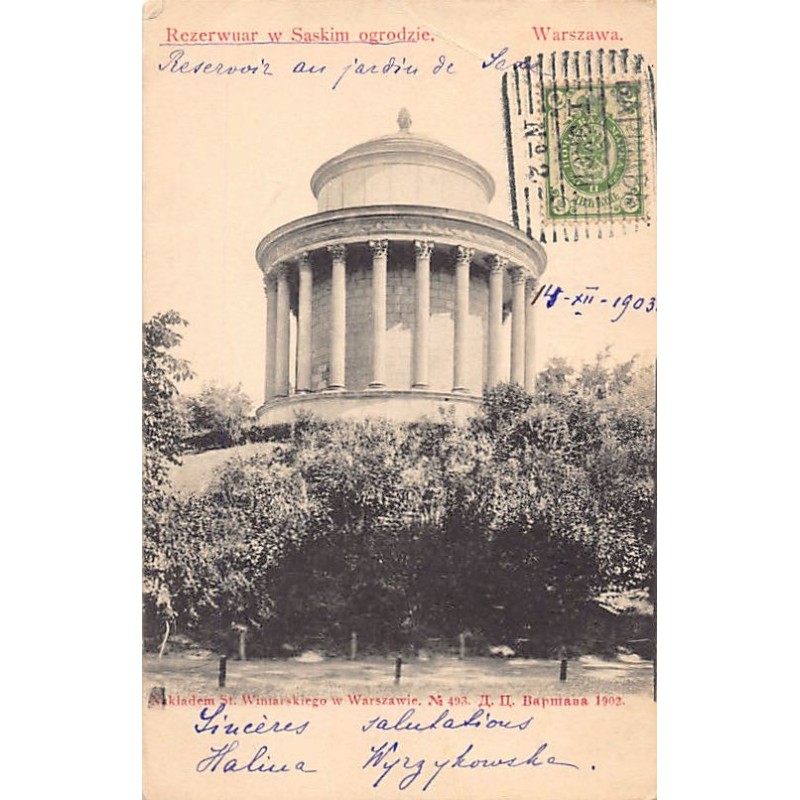 Rezerwuar w Saskim ogrodzie. Warszawa.
Reservoir au jardin de
№ 2
14-XII-1903.
Nakładem St. Winiarskiego w Warszawie. № 493. Д. Ц. Варшава 1902.
Sincères salutations
Halina Wyrzykowska.